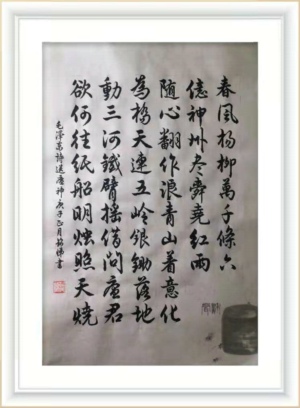 春风杨柳萬千條六
億神州尽舜堯紅雨
随心翻作浪青山着意化
為橋天連五岭銀鋤落地
動三河鐵臂摇借问瘟君
欲何往纸船明烛照天燒
毛澤東詩送瘟神庚子正月書